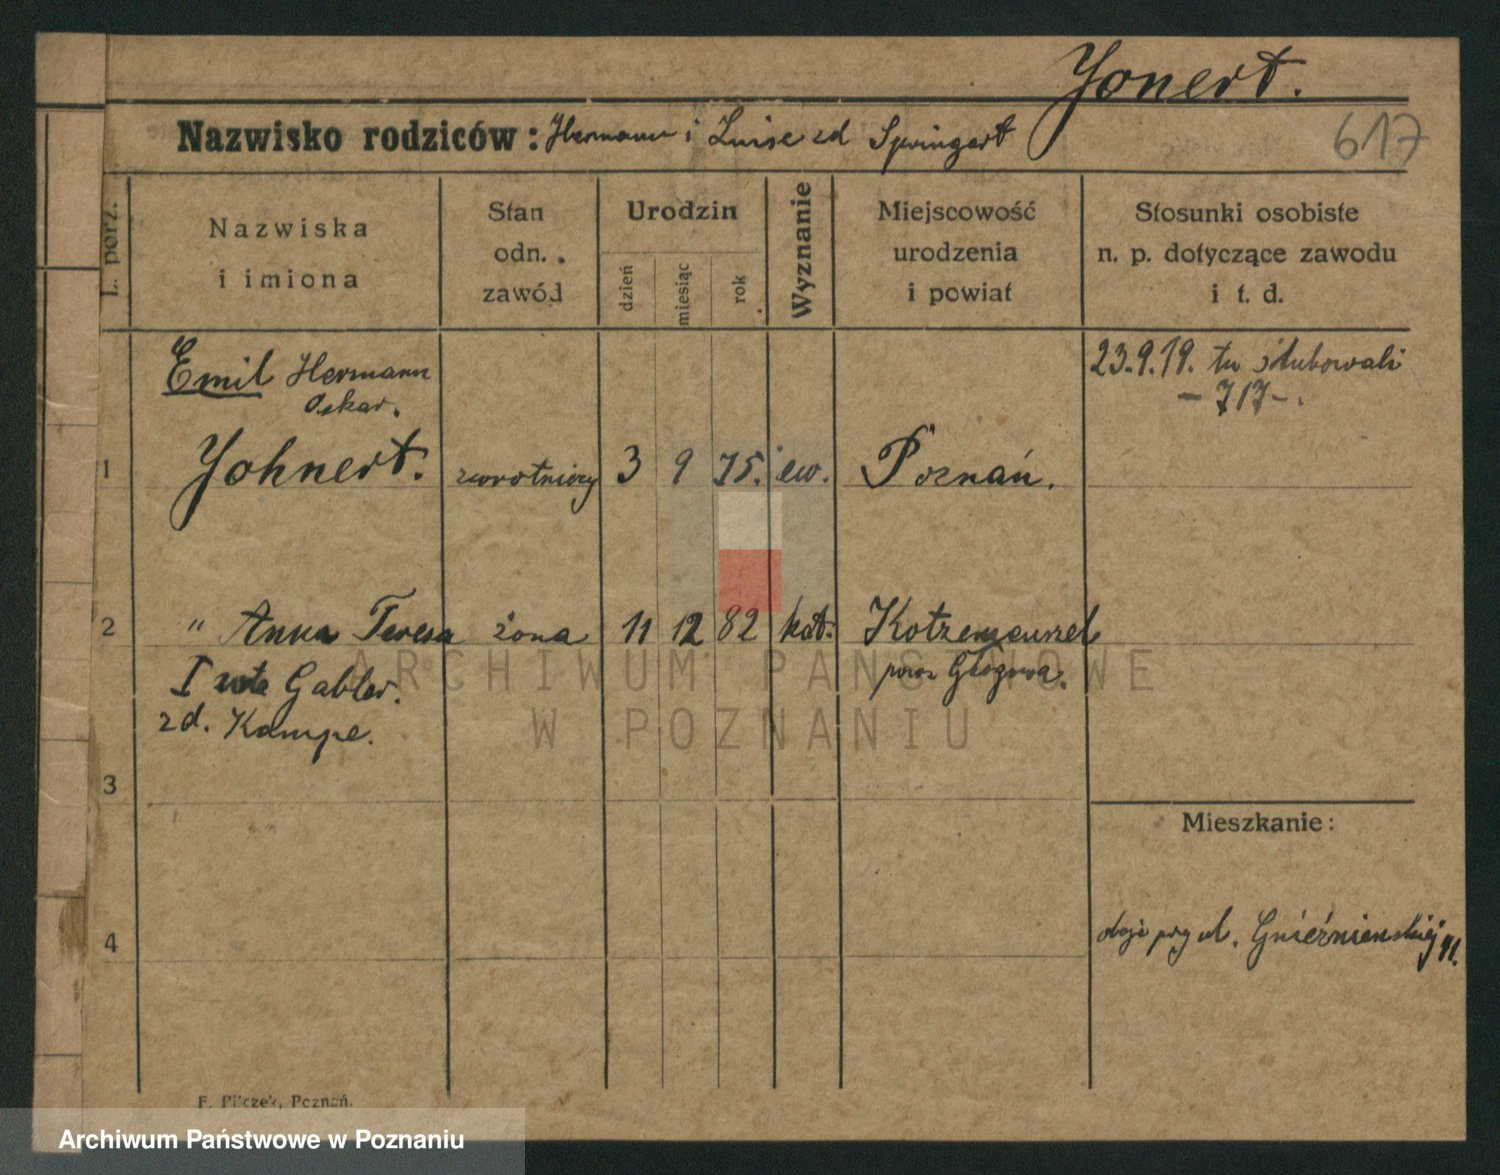 Yonert.
617
Nazwisko rodziców: Hermann i Luise zd Springart
L. porz.
Nazwiska
i imiona
Stan
odn.
zawód
Urodzin
dzień
miesiąc
rok
Wyznanie
Miejscowość
urodzenia
i powiat
Stosunki osobiste
n. p. dotyczące zawodu
i t. d.
Emil Hermann
Oskar.
23.9.19. tu ślubowali
- 717 -.
1 Yohnert. zwrotniczy 3 9 75. ew. Poznań.
2 " Anna Teresa żona 11 12 82 kat. Kotzemeuszel
I voto Gabler. pow Głogowa.
zd. Kampe.
3
Mieszkanie:
4
oboje przy ul. Gnieźnienskiej 41.
F. Pilczek, Poznań.
ARCHIWUM PAŃSTWOWE
W POZNANIU
Archiwum Państwowe w Poznaniu